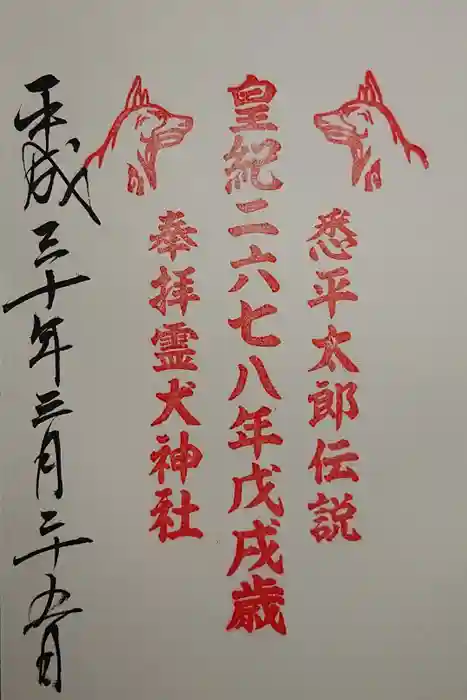 悉平太郎伝説
皇紀二六七八年戊戌歳
奉拝霊犬神社
平成三十年三月二十九日